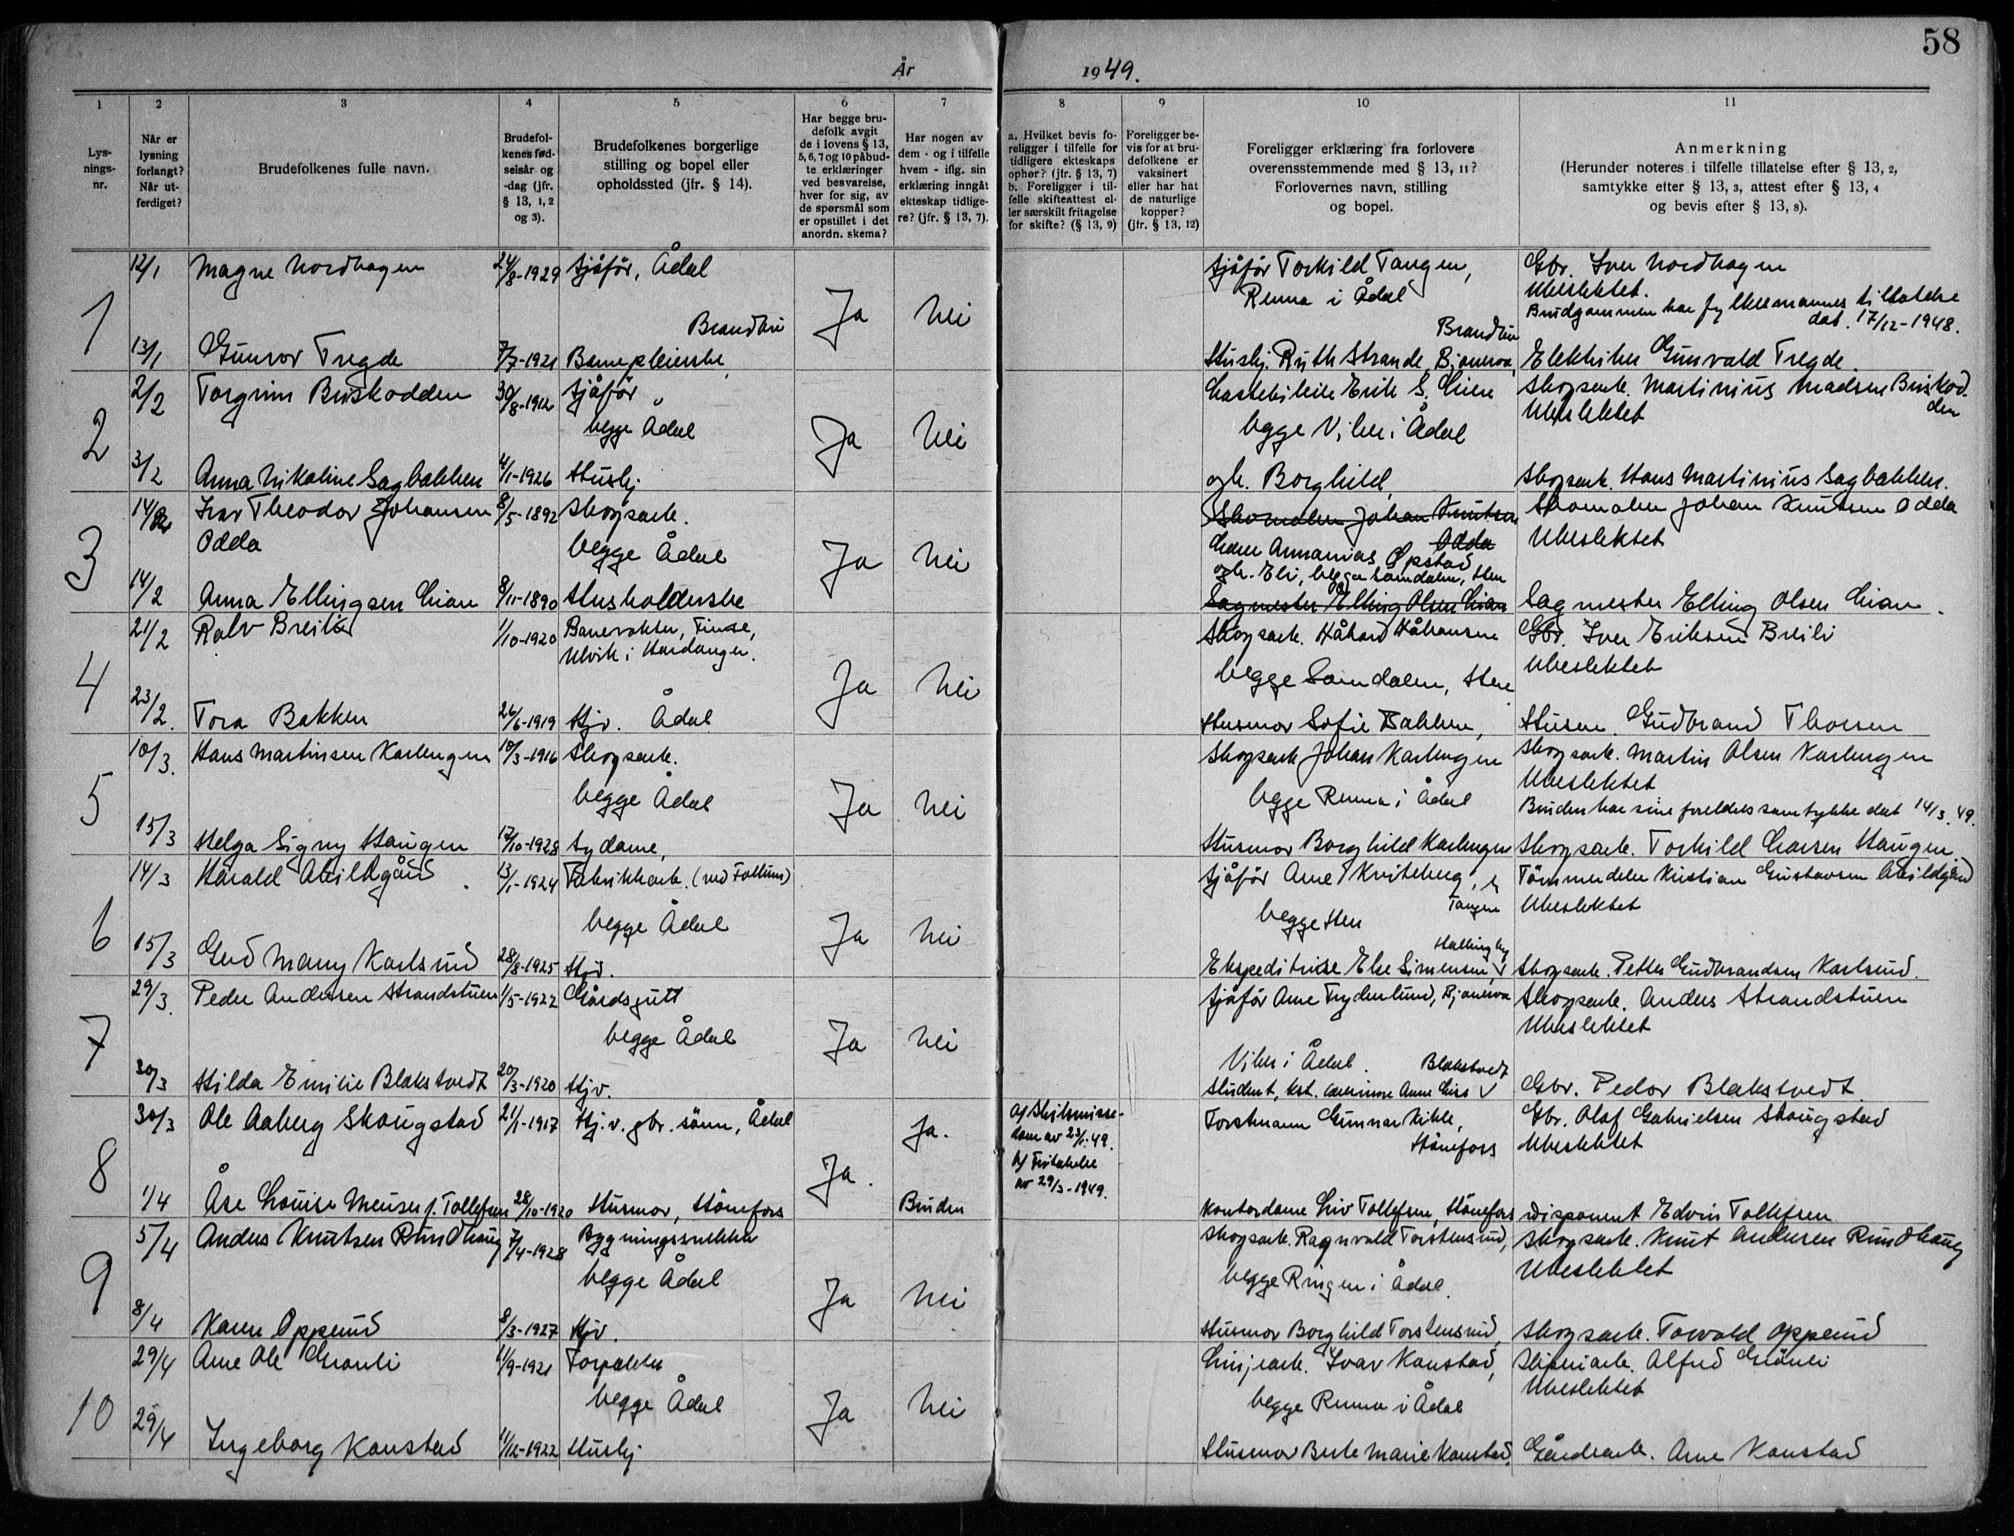 58
År 1949.
1
2
3
4
5
6
7
8
9
10
11
Lys-
nings-
nr.
Når er
lysning
forlangt?
Når ut-
ferdiget?
Brudefolkenes fulle navn.
Brudefol-
kenes fød-
selsår og
-dag (jfr.
§ 13, 1, 2
og 3).
Brudefolkenes borgerlige
stilling og bopel eller
opholdssted (jfr. § 14).
Har begge bru-
defolk avgit
de i lovens § 13,
5, 6, 7 og 10 påbud-
te erklæringer
ved besvarelse,
hver for sig, av
de spørsmål som
er opstillet i det
anordn. skema?
Har nogen av
dem - og i tilfelle
hvem - iflg. sin
erklæring inngått
ekteskap tidlige-
re? (jfr. § 13, 7).
a. Hvilket bevis fo-
religger i tilfelle for
tidligere ekteskaps
ophør? (jfr. § 13, 7)
b. Foreligger i til-
felle skifteattest el-
ler særskilt fritagelse
for skifte? (§ 13, 9)
Foreligger be-
vis for at bru-
defolkene er
vaksinert
eller har hat
de naturlige
kopper?
(jfr. § 13, 12)
Foreligger erklæring fra forlovere
overensstemmende med § 13, 11?
Forlovernes navn, stilling
og bopel.
Anmerkning
(Herunder noteres i tilfelle tillatelse efter § 13, 2,
samtykke etter § 13, 3, attest efter § 13, 4
og bevis efter § 13, 8).
1
12/1 Magne Nordhagen 24/8-1929 Sjåför, Ådal
Sjåför Torkild Tangen, Gbr. Iver Nordhagen
Renna i Ådal Ubeslektet.
Brudgommen har fylkesmannes tillatelse
dat. 17/12-1948.
Ja Nei
Brandbu Brandbu
13/1 Gunvor Tregde 7/7-1921 Barnepleierske,
Husbj. Ruth Strande, Bjoneroa, Elektriker Gunvald Tregde.
2
2/2 Torgrim Buskodden 30/8-1912 Sjåför
Lastebileier Erik S. Liere Skogsarb. Martinius Madsen Buskod-
den
begge Ådal Ja Nei begge Viker i Ådal Ubeslektet
3/2 Anna Nikoline Sagbakken 4/1-1926 Husbj.
og h. Borghild, Skogsarb. Hans Martinius Sagbakken.
3
14/2 Ivar Theodor Johansen 8/5-1892 Skogsarb.
Skomaker Johan Knutsen Skomaker Johan Knutsen Odda
Odda begge Ådal Ja Nei Odda Ubeslektet
Annanias Opstad
og h. Eli, begge Somdalen, Hen
14/2 Anna Ellingsen Lian 8/11-1890 Husholderske
Sagmester Elling Olsen Lian Sagmester Elling Olsen Lian.
4
21/2 Rolv Breili 1/10-1920 Banevokter, Finse,
Ulvik i Hardanger.
Skogsarb. Håvard Håkansen Gbr. Iver Eriksen Breili
Ja Nei begge Somdalen, Hen Ubeslektet
23/2. Tora Bakken 26/6-1919 Hjv. Ådal
Husmor Sofie Bakken, Husm. Gudbrand Thorsen
5
10/3. Hans Martinsen Karlengen 10/3-1916 Skogsarb.
Skogsarb. Johan Karlengen Skogsarb. Martin Olsen Karlengen
begge Ådal Ja Nei begge Renna i Ådal Ubeslektet
Bruden har sine foreldres samtykke dat 14/3. 49.
15/3 Helga Signy Haugen 17/10-1928 Sydame,
Husmor Borghild Karlengen Skogsarb. Torkild Larsen Haugen.
6
14/3 Harald Abildgård 13/1-1924 Fabrikkarb. (ved Follum)
Sjåför Arne Kviteberg, Tömmermåler Kristian Gustavsen Abildgård
Tangen
begge Ådal Ja Nei begge Hen Ubeslektet
15/3 Gerd Marry Karlsrud 28/8-1925 Hjv.
Hallingby
Ekspeditrise Else Simensen Skogsarb. Petter Gudbrandsen Karlsrud.
7
29/3. Peder Andersen Strandstuen 1/5-1922 Gårdsgutt
Sjåför Arne Frydenlund, Bjoneroa Skogsarb. Anders Strandstuen
begge Ådal Ja Nei Viker i Ådal. Ubeslektet
30/3 Hilda Emilie Blakstvedt 20/3-1920 Hjv.
Blakstvedt
Student, Anne Lise Gbr. Pedor Blakstvedt.
8
30/3 Ole Aaberg Skougstad 21/1-1917 Hj.v. gbr. sönn, Ådal Ja.
a/ Skilsmisse-
dom av 23/1-49.
b/ Fritakelse
av 29/3-1949.
Forstmann Gunnar Kihle, Hönefoss Gbr. Olaf Gabrielsen Skougstad
Ja. Ubeslektet
1/4 Åse Louise Meuser f. Tollefsen 28/10-1920 Husmor, Hönefoss Bruden
Kontordame Liv Tollefsen, Hönefoss Disponent Edvin Tollefsen
9
5/4 Anders Knutsen Rundhaug 7/4-1928 Bygningssnekker
Skogsarb. Ragnvald Torstensrud, Skogsarb. Knut Andersen Rundhaug
begge Ådal Ja Nei begge Ringen i Ådal. Ubeslektet
8/4 Karen Opperud 8/3-1927 Hjv.
Husmor Borghild Torstensrud, Skogsarb. Torvald Opperud
10
29/4 Arne Ole Granli 11/9-1921 Forpakter
Linjearb. Ivar Kanstad, Sliperiarb. Alfred Granli
begge Ådal Ja Nei begge Renna i Ådal Ubeslektet
29/4 Ingeborg Kanstad 11/12-1922 Husbj
Husmor Berte Marie Kanstad. Gårdsarb. Arne Kanstad